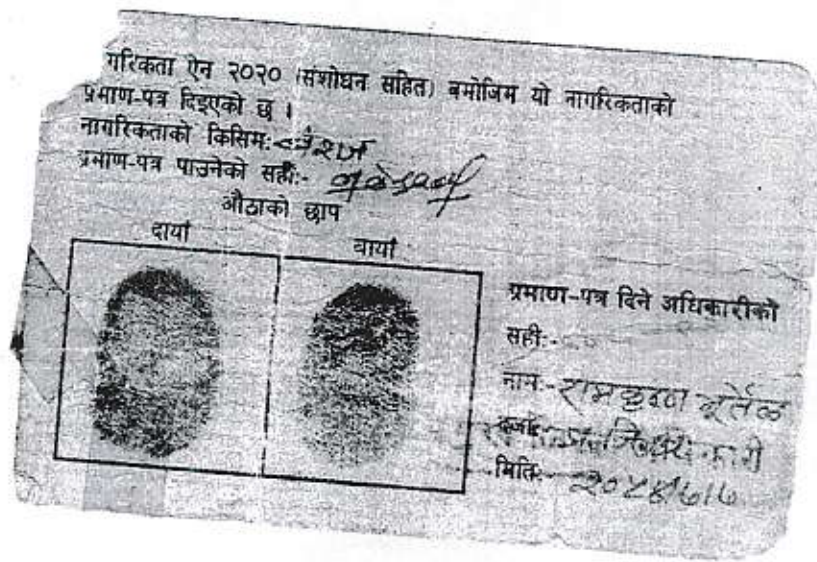 गरिकता ऐन २०२० (संशोधन सहित) बमोजिम यो नागरिकताको
प्रमाण-पत्र दिइएको छ ।
नागरिकताको किसिम:- वंशज
प्रमाण-पत्र पाउनेको सही:-
औठाको छाप
दायाँ बायाँ
प्रमाण-पत्र दिने अधिकारीको
सही:-
नाम:- रामकृष्ण
दर्जा:-
मिति:-